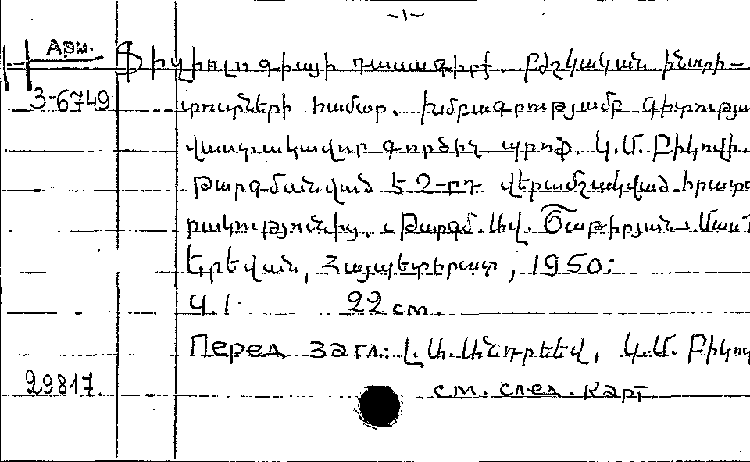 -1-
Арм.
Ֆիզիոլոգիայի դասագիրք. Բժշկական ինստի-
3-6749 տուտների համար. Խմբագրությամբ գիտությա
վաստակավոր գործիչ պրոֆ. Կ.Մ.Բիկովի.
Թարգմանված է 2-րդ վերամշակված հրատ
րակությունից. Թարգմ. Ծաթիրյան Մաս
Երևան, Հայպետհրատ, 1950:
Ч.1. 22 см.
Перед загл: Լ.Ա.Անդրեև, Կ.Մ. Բիկո
29817. см. след. карт